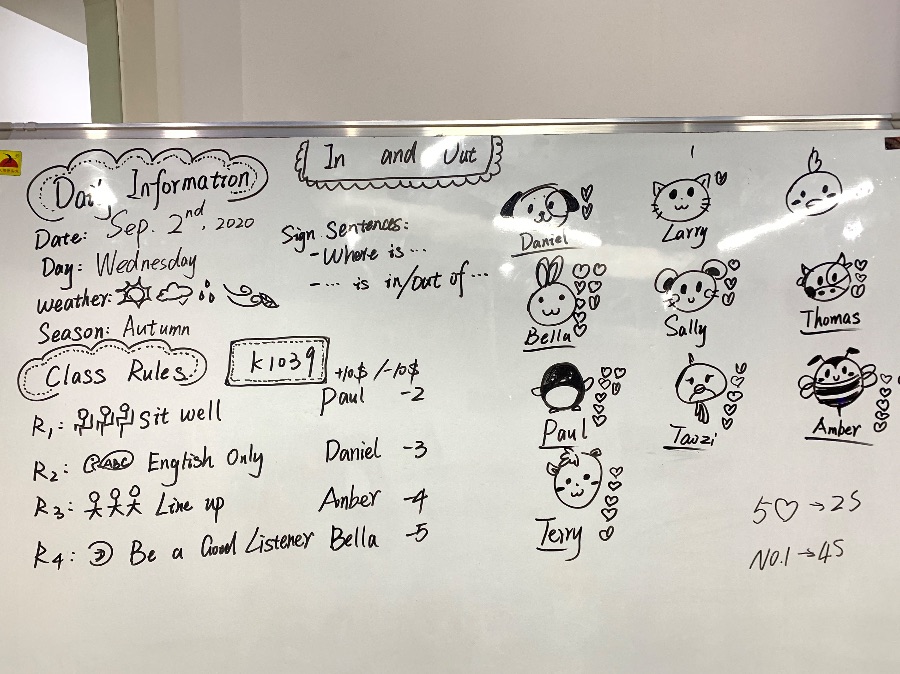 Daily Information
Date: Sep. 2nd, 2020
Day: Wednesday
weather:
Season: Autumn
In and Out
Sign Sentences:
- Where is ...
- ... is in/out of ...
Class Rules
K1039
+10$ /-10$
R1: Sit well
R2: ABC English Only
R3: Line up
R4: Be a Good Listener
Paul -2
Daniel -3
Amber -4
Bella -5
Daniel
Larry
Bella
Sally
Thomas
Paul
Taozi
Amber
Terry
5♡→2S
NO.1→4S